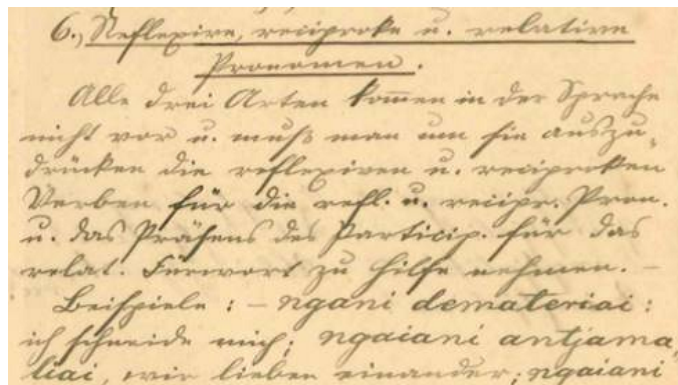 6., Reflexive, reciproke u. relative
Pronomen.
Alle drei Arten kom̅en in der Sprache
nicht vor u. muß man um sie auszu„
drücken die reflexiven u. reciproken
Verben für die refl. u. recipr. Pron.
u. das Präsens des Particip. für das
relat. Fürwort zu Hilfe nehmen. –
Beispiele : – ngani demateriai :
ich schneide mich; ngaiani antjama„
liai, wir lieben einander; ngaiani